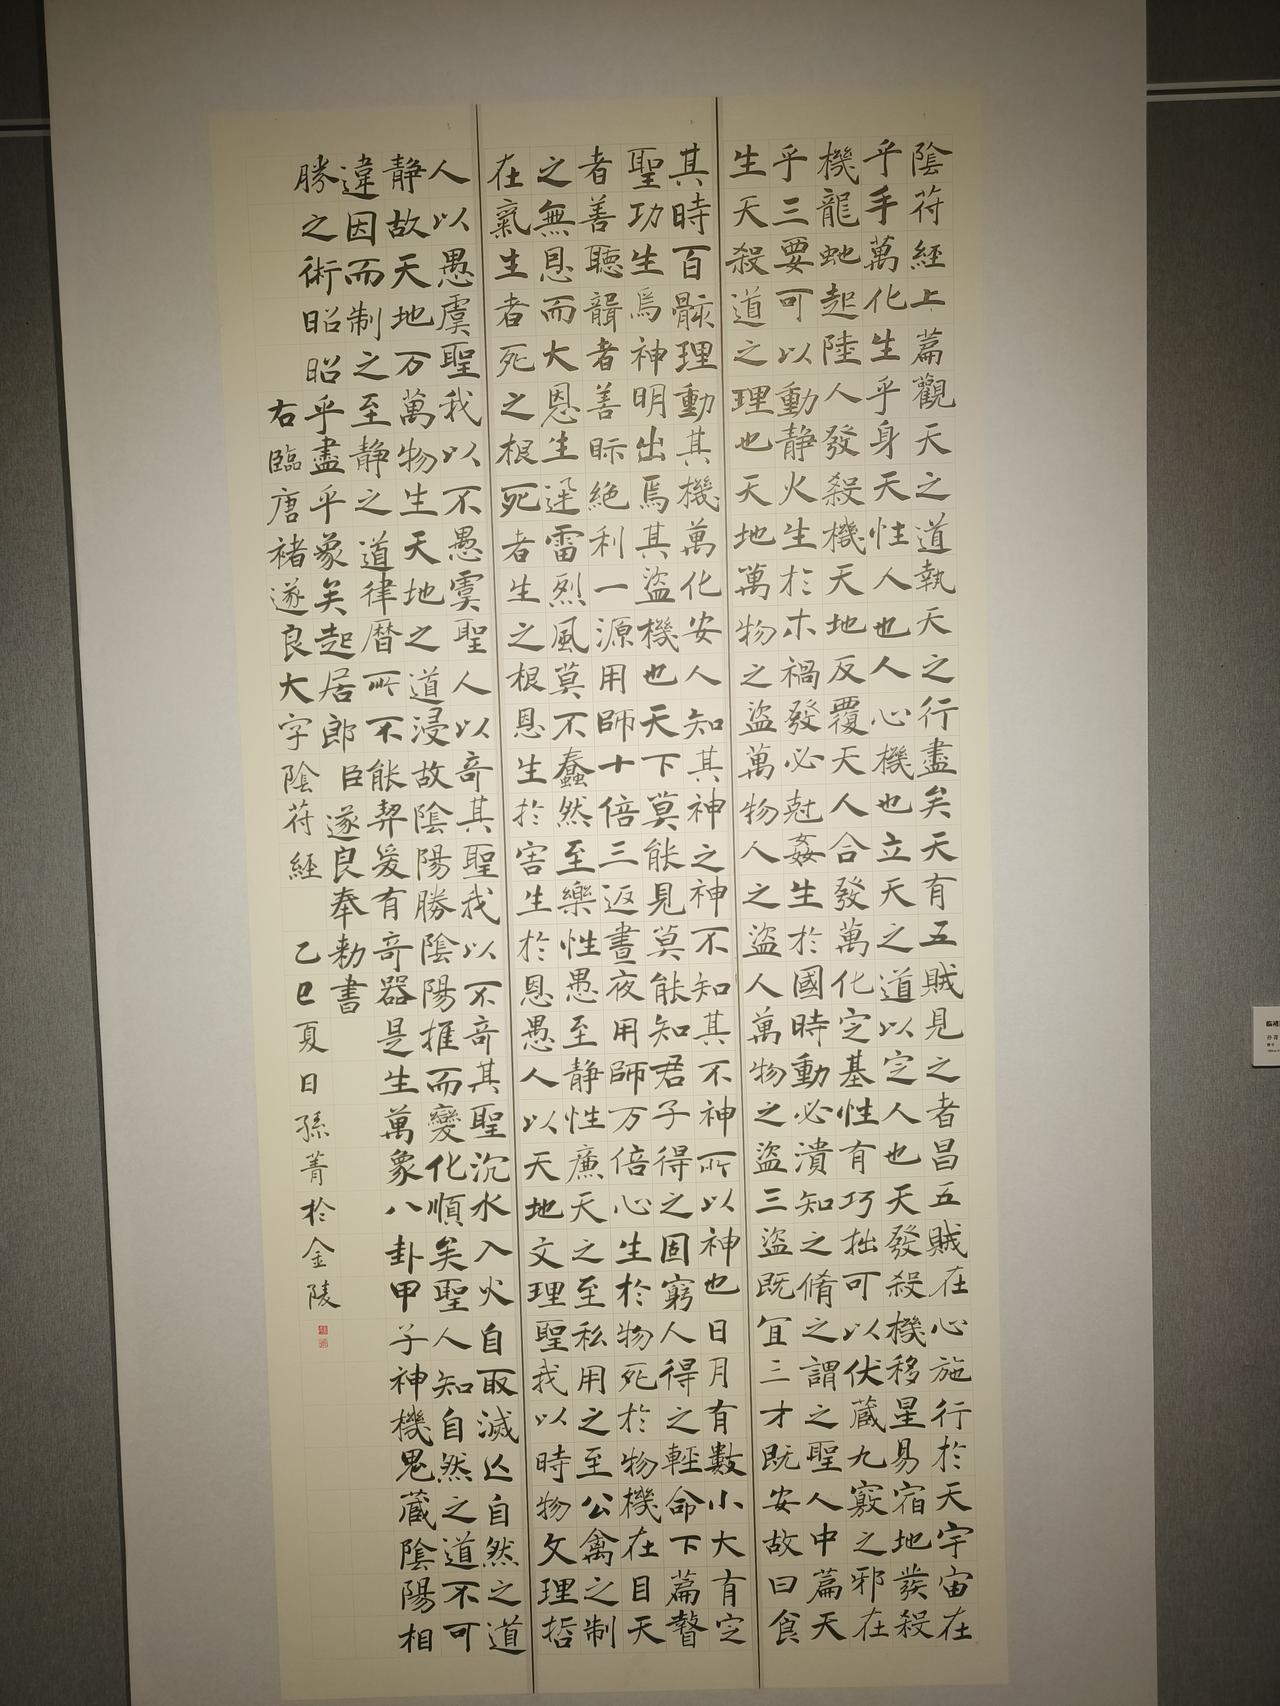 陰符經上篇觀天之道執天之行盡矣天有五賊見之者昌五賊在心施行於天宇宙在
乎手萬化生乎身天性人也人心機也立天之道以定人也天發殺機移星易宿地發殺
機龍虵起陸人發殺機天地反覆天人合發萬化定基性有巧拙可以伏藏九竅之邪在
乎三要可以動静火生於木禍發必尅姦生於國時動必潰知之脩之謂之聖人中篇天
生天殺道之理也天地萬物之盜萬物人之盜人萬物之盜三盜既宜三才既安故曰食
其時百骸理動其機萬化安人知其神之神不知其不神所以神也日月有數小大有定
聖功生焉神明出焉其盜機也天下莫能見莫能知君子得之固窮人得之輕命下篇瞽
者善聽聾者善眎絶利一源用師十倍三返晝夜用師万倍心生於物死於物機在目天
之無恩而大恩生迅雷烈風莫不蠢然至樂性愚至静性廉天之至私用之至公禽之制
在氣生者死之根死者生之根恩生於害害生於恩愚人以天地文理聖我以時物文理哲
人以愚虞聖我以不愚虞聖人以奇其聖我以不奇其聖沉水入火自取滅亡自然之道
静故天地万萬物生天地之道浸故陰陽勝陰陽推而變化順矣聖人知自然之道不可
違因而制之至静之道律曆所不能契爰有奇器是生萬象八卦甲子神機鬼藏陰陽相
勝之術昭昭乎盡乎象矣起居郎臣遂良奉勅書
右臨唐褚遂良大字陰符經 乙巳夏日孫菁於金陵